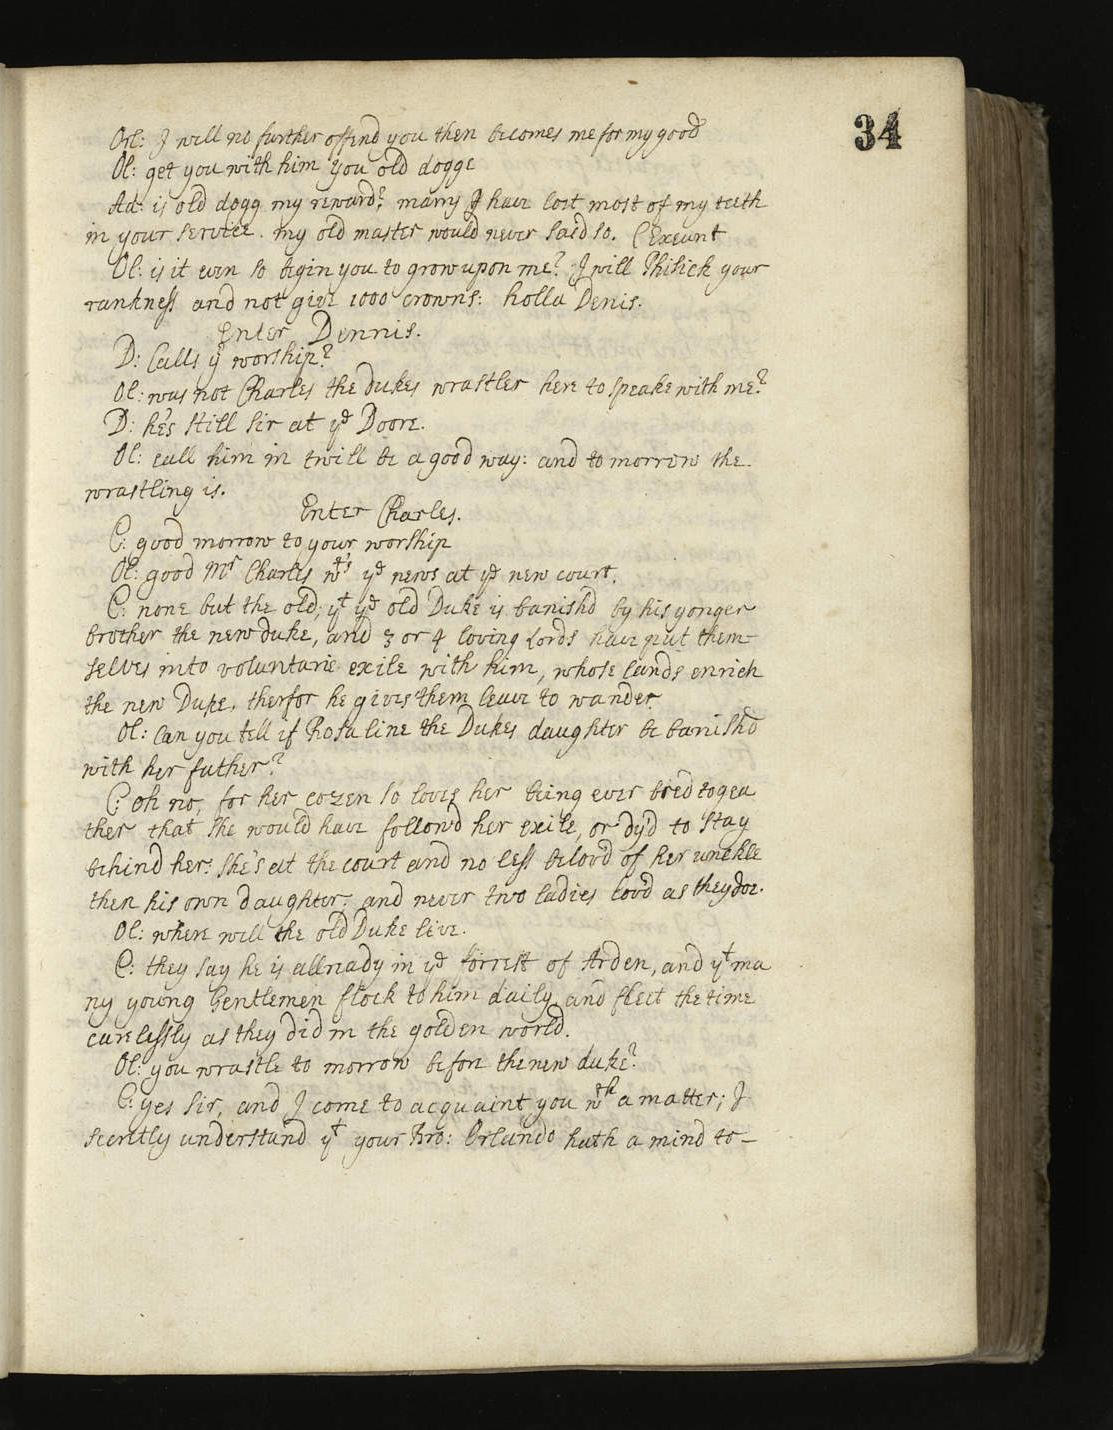 34
Orl: I will no further offend you then becomes me for my good
Ol: get you with him you old dogge
Ad: is old dogg my reward? marry I have lost most of my teeth
in your service. my old master would never said so. (Exeunt
Ol: is it even so begin you to grow upon me? I will Phisick your
rankness and not give 1000 crowns: holla Denis.
Enter Dennis.
D: Calls yr worship?
Ol: was not Charles the dukes wrastler here to speake with me?
D: he's still sir at ye Doore.
Ol: call him in twill be a good way: and to morrow the
wrastling is.
Enter Charles.
C: good morrow to your worship
Ol: good Mr Charles wt's ye news at ye new court.
C: none but the old, yt ye old Duke is banishd by his yonger
brother the new duke, and 3 or 4 loving Lords have put them-
selves into voluntarie exile with him, whose lands enrich
the new Duke, therfor he gives them leave to wander
Ol: Can you tell if Rosaline the Dukes daughter be banish'd
with her father?
C: oh no, for her cozen so loves her being ever bred togea
ther that she would have followd her exile, or dy'd to stay
behind her: she's at the court and no less belov'd of her unckle
then his own daughter: and never two ladies lov'd as they doe.
Ol: where will the old Duke live.
C: they say he is allready in ye forrest of Arden, and yt ma
ny young Gentlemen flock to him daily and fleet the time
carelessly as they did in the golden world.
Ol: you wrastle to morrow before the new duke?
C: yes sir, and I come to acquaint you wth a matter; I
secretly understand yt your Bro: Orlando hath a mind to-